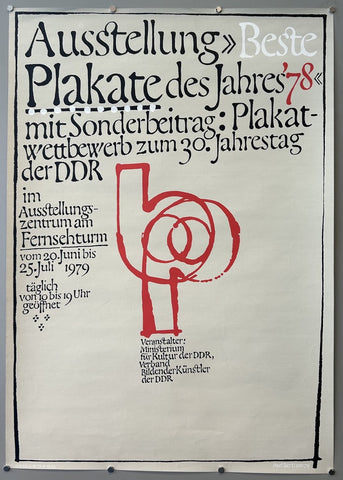 Ausstellung» Beste
Plakate des Jahres '78«
mit Sonderbeitrag: Plakat-
wettbewerb zum 30. Jahrestag
der DDR
im
Ausstellungs-
zentrum am
Fernsehturm
vom 20. Juni bis
25. Juli 1979
täglich
von 10 bis 19 Uhr
geöffnet
Veranstalter:
Ministerium
für Kultur der DDR,
Verband
Bildender Künstler
der DDR